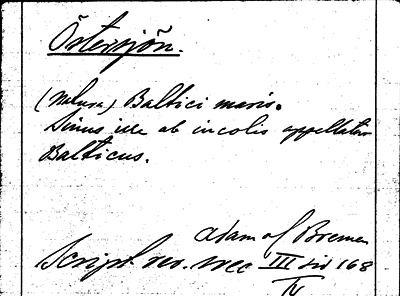 Östersjön.
(natura) Baltici maris.
Sinus ille ab incolis appellatur
Balticus.
Adam af Bremen
Script. rer. svec III sid 168
IV